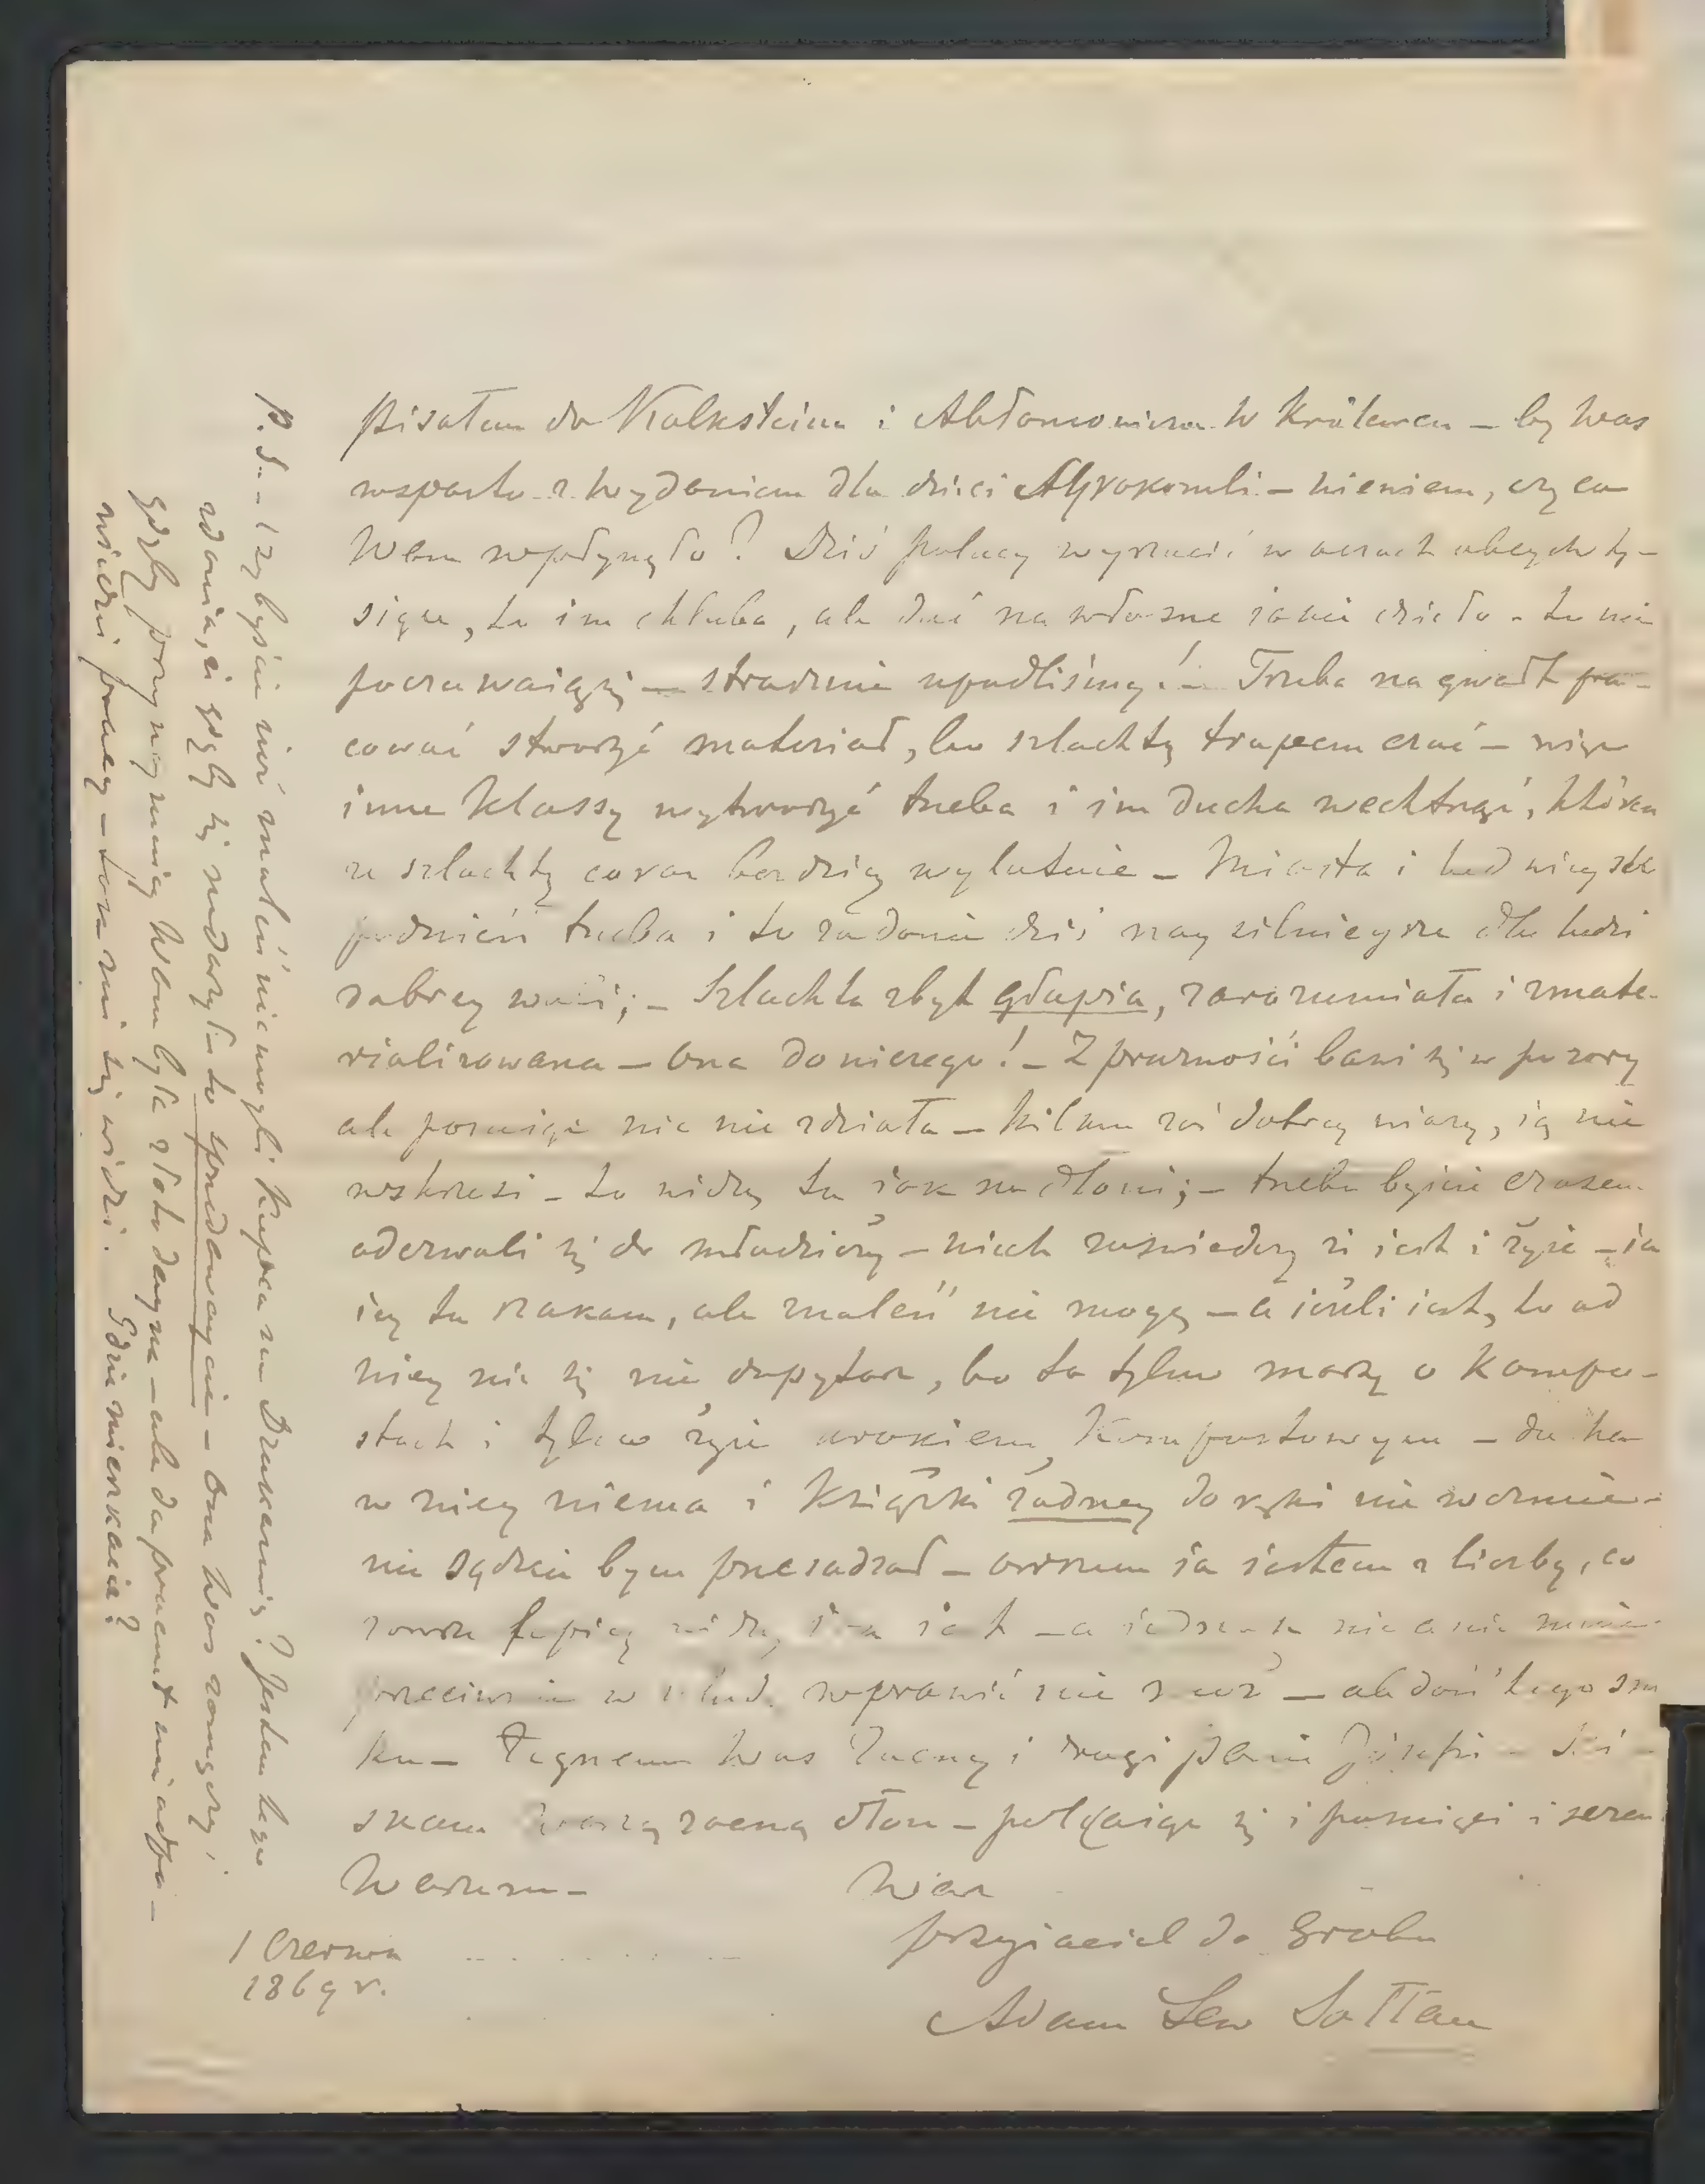 pisałem do Kalksteina i Abłamowicza w Królewcu – by Was
wsparto z wydaniem dla dzieci Syrokomli – niewiem, czy co
Wam wpłynęło? Dziś polacy wyrzucić w oczach obcych ty-
siące, to im chluba, ale dać na własne jakie dzieło – to nie
poczuwaią się – strasznie upadliśmy! – Trzeba na gwałt pra-
cować stworzyć materiał, bo szlachtę trupem czuć – więc
inne klassy wytworzyć trzeba i im ducha wechtnąć, który
ze szlachty coraz bardziey wylatuie – Miasta i lud wieyski
podnieść trzeba i to zadanie dziś nay silnieysze dla ludzi
dobrey woli; – Szlachta zbyt głupia, zarozumiała i zmate-
rializowana – ona do niczego! – Z prużności bawi się w pozory
ale poświęceń nic nie zdziała – kilku zaś dobrey wiary, ią nie
wskrzesi – to widzę tu iak na dłoni; – trzeba byście czasem
odezwali się do młodzieży – niech zaświadczy że iest i żyie – ia
iey tu szukam, ale znaleść nie mogę – a ieśli iest, to od
niey nic się nie dopytasz, bo ta tylko marzy o kompo-
stach i tylko żyie urokiem kompostowym – ducha
w niey niema i książki żadney do ręki nie weźmie –
nie sądźcie bym przesadzał – owszem ia iestem z liczby, co
zawsze lepiey widzę iak iest – a iednak nic a nic mnie
przeciwnie w błąd wprawić nie zdoła – ale dość tego smu-
tku – Żegnam Was Zacny i drogi Panie Józefie – Ści-
skam Waszą zacną dłoń – polecaiąc się i pamięci i sercu
Waszemu –
Wasz
przyiaciel do Grobu
Adam Lew Sołtan
1 Czerwca
1869 r.
P.S. – Czybyście nieś znaleść niemogli Kupca na Drukarnię? Jestem tego
zdania, iż gdyby się nadarzyło to sprzedawaycie – ona Was zamęczy,
gdyby przynaymniey Wam była złoto dayna – ale da procent nie odpo-
wiedni pracy – tora mi się widzi. Gdzie mieszkacie?